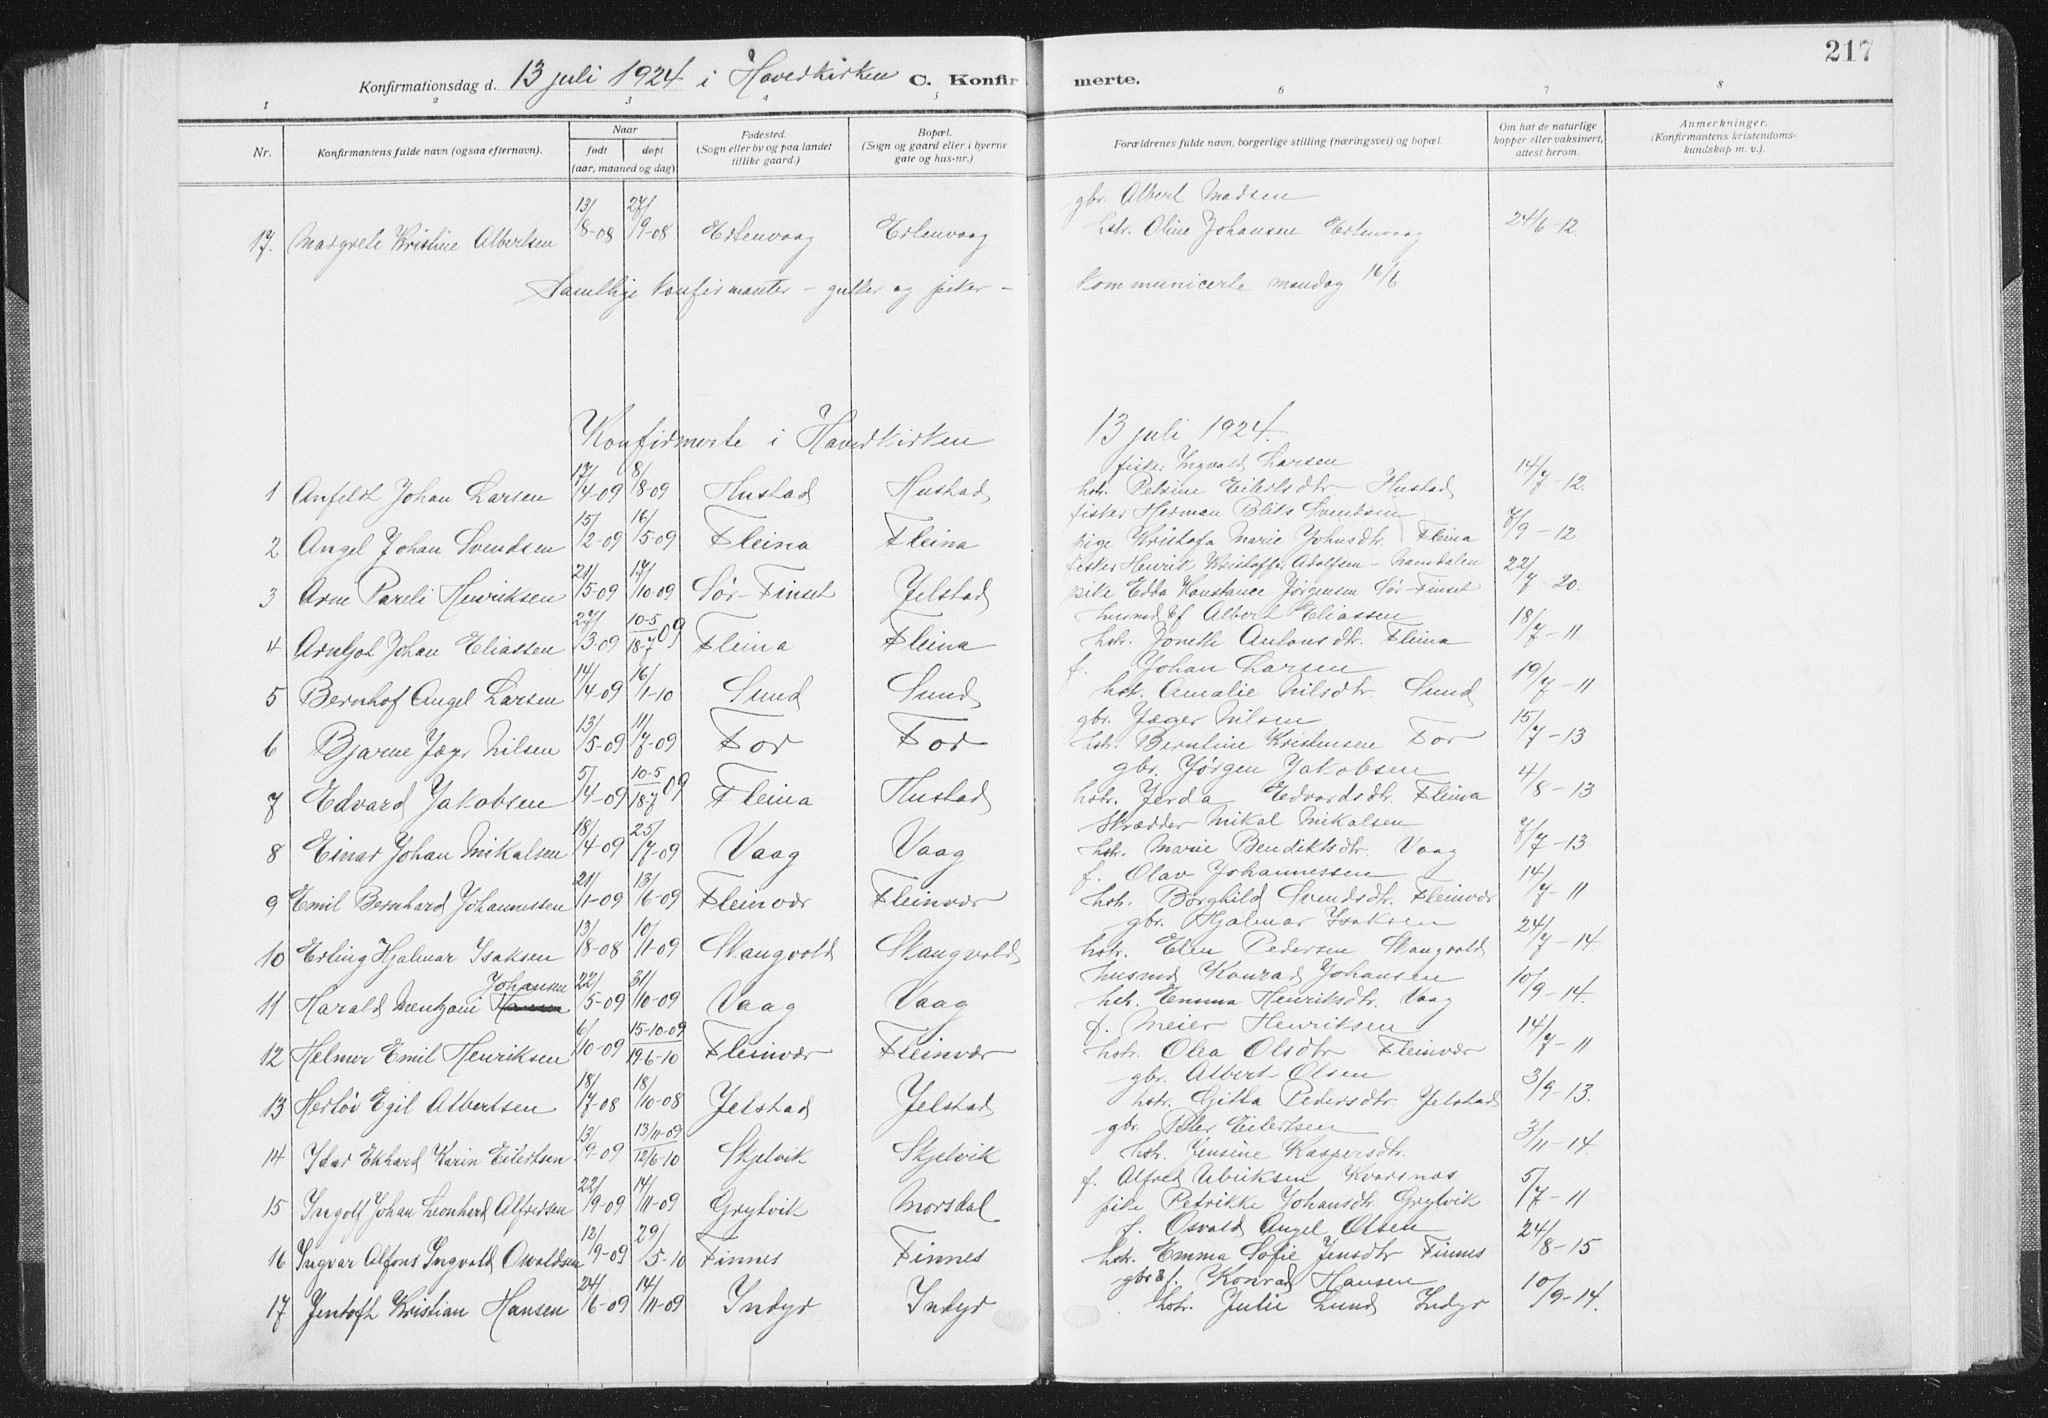 217
Konfirmationsdag d. 13 juli 1924 i Hovedkirken C. Konfirmerte.
1 2 3 4 5 6 7 8
Nr. Konfirmantens fulde navn (ogsaa efternavn). Naar født døpt (aar, maaned og dag) Fødested. (Sogn eller by og paa landet tillike gaard.) Bopæl. (Sogn og gaard eller i byerne gate og hus-nr.) Forældrenes fulde navn, borgerlige stilling (næringsvei) og bopæl. Om hat de naturlige kopper eller vaksinert, attest herom. Anmerkninger. (Konfirmantens kristendomskundskap m. v.).
gbr. Albert Madsen
17. Margrete Kristine Albertsen 13/8-08 27/9-08 Ertenvaag Ertenvaag hstr. Oline Johansen Ertenvaag 24/6-12.
Samtlige konfirmanter – gutter og piker – kommunicerte mandag 16/6
Konfirmerte i Hovedkirken 13 juli 1924.
fisker Ingvald Larsen
1 Anfeldt Johan Larsen 17/4-09 8/8-09 Hustad Hustad hstr. Petrine Eilertsdtr. Hustad 14/7-12.
fisker Herman Bliks Svendsen
2 Angel Johan Svendsen 15/2-09 16/5-09 Fleina Fleina pige Kristofa Marie Johnsdtr. Fleina 7/9-12
fisker Henrik Kristoffer Adolfsen – Namdalen
3 Arne Pareli Henriksen 21/5-09 17/10-09 Sør-Finset Jelstad pike Edda Konstance Jørgensen Sør-Finset 22/7-20.
husmd. & f. Albert Eliassen
4 Arntjot Johan Eliassen 27/3-09 10-5/18-7 09 Fleina Fleina hstr. Jonette Antonsdtr. Fleina 18/7-11
f. Johan Larsen
5 Bernhof Angel Larsen 14/4-09 16/1-10 Sund Sund hstr. Amalie Nilsdtr. Sund 19/7-11
gbr. Jæger Nilsen
6 Bjarne Jæger Nilsen 13/5-09 11/7-09 For For hstr. Berntine Kristensen For 15/7-13
gbr. Jørgen Jakobsen
7 Edvard Jakobsen 5/4-09 10-5/18-7 09 Fleina Hustad hstr. Jerda Edvardsdtr. Fleina 4/8-13
Skrædder Mikal Mikalsen
8 Einar Johan Mikalsen 18/4-09 25/7-09 Vaag Vaag hstr. Marie Bendiktsdtr. Vaag 7/7-13
f. Olav Johannessen
9 Emil Bernhard Johannessen 21/1-09 13/6-09 Fleinvær Fleinvær hstr. Borghild Svendsdtr. Fleinvær 14/7-11
gbr. Hjalmar Isaksen
10 Erling Hjalmar Isaksen 13/8-08 10/1-09 Skaugvold Skaugvold hstr. Elen Pedersen Skaugvold 24/7-14.
husmd Konrad Johansen
Johansen
11 Harald Mentzoni Hansen 22/5-09 31/10-09 Vaag Vaag hstr. Emma Henriksdtr. Vaag 10/9-14.
f. Meier Henriksen
12 Helmer Emil Henriksen 6/10-09 15-10-09/19-6-10 Fleinvær Fleinvær hstr. Olea Olsdtr Fleinvær 14/7-11
gbr. Albert Olsen
13 Herløv Egil Albertsen 18/7-08 18/10-08 Jelstad Jelstad hstr. Gitta Pedersdtr. Jelstad 3/9-13.
gbr. Peter Eilertsen
14 Ekhard Karin Eilertsen 13/9-09 13/11-09 12/6-10 Skjelvik Skjelvik hstr. Jensine Kaspersdtr. 3/11-14.
f. Alfred Ulriksen Kvarsnes
15 Ingolf Johan Leonhard Alfredsen 22/9-09 14/11-09 Grytvik Morsdal pike Petrikke Johansdtr. Grytvik 5/7-11
f. Osvald Angel Olsen
16 Ingvar Alfons Ingvald Osvaldsen 12/9-09 29/5-10 Finnes Finnes hstr. Emma Sofie Jensdtr Finnes 24/8-15
gbr & f. Konrad Hansen
17 Jentoft Kristian Hansen 24/6-09 14/11-09 Indyr Indyr hstr. Julie Lund Indyr 10/9-14.